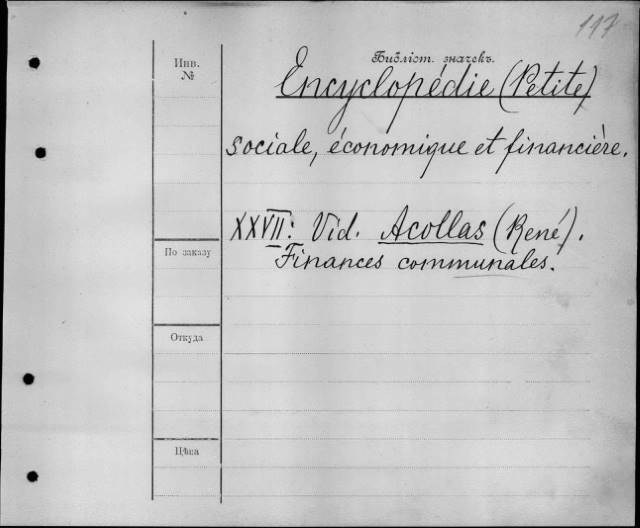 117
Инв.
№
Библіот. значекъ.
Encyclopédie (Petite)
sociale, économique et financière.
XXVII: Vid. Acollas (René).
Finances communales.
По заказу
Откуда
Цѣна